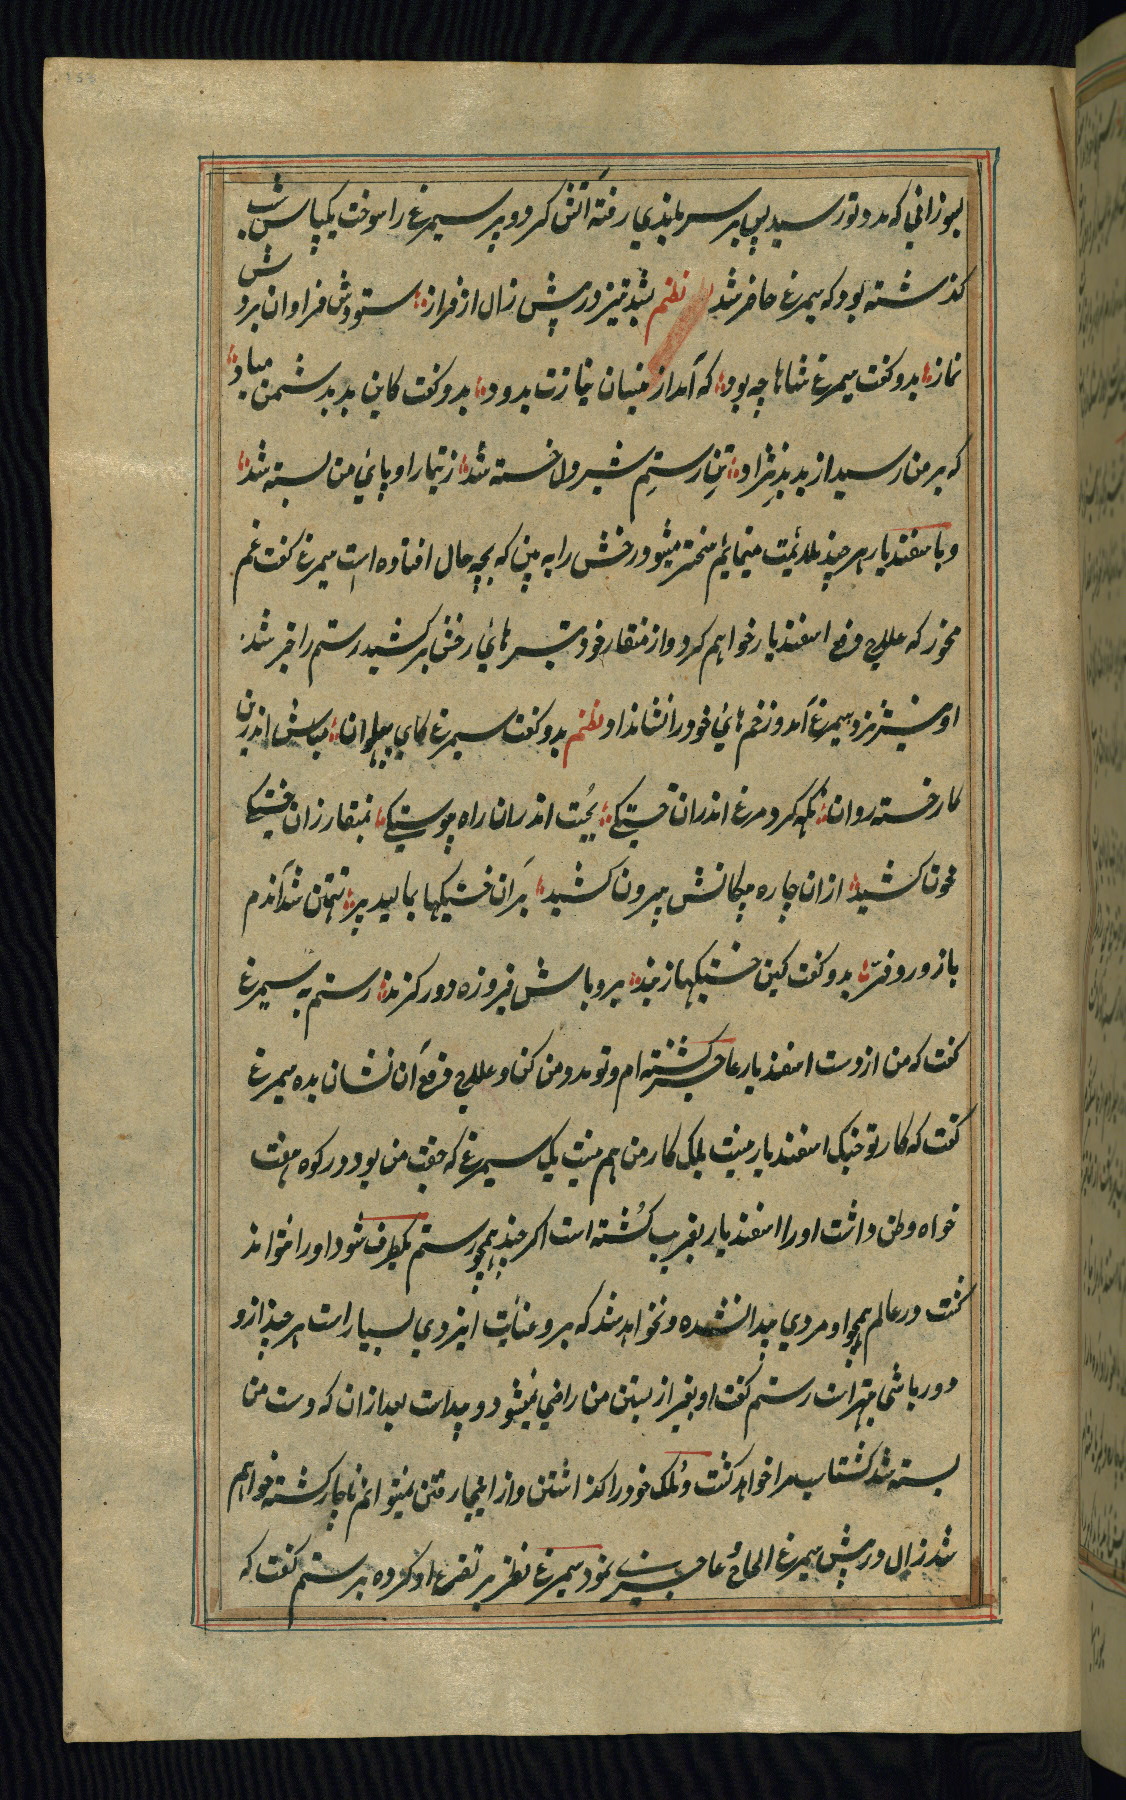 بسوزانی که مدد تو رسد پس بر سر بلندی رفته آتش کرد و پر سیمرغ را سوخت یکپاس شب
گذشته بود که سیمرغ حاضر شد نظم بشد تیز در پیش زال از فراز ستودش فراوان بردش
نماز بدو گفت سیمرغ شاها چه بود که آمد ازینسان نیازت بدود بدو گفت کاین بد بدشمن مباد
که بر من رسید از بد بدنژاد تن رستم شیردل خسته شد ز تیمار او پای من بسته شد
و با اسفندیار هر چند ملایمت مینمائیم سخت‌تر میشود رخش را به بین که بچه حال افتاده است سیمرغ گفت غم
مخور که علاج دفع اسفندیار خواهم کرد و از منقار خود تیرهای رخش برکشید رستم را خبر شد
او نیز نزد سیمرغ آمد و زخمهای خود را نشانداد نظم بدو گفت سیمرغ کای پهلوان مباش اندرین
کار خسته روان نگه کرد مرغ اندران خستگی بجست اندران راه پیوستگی بمنقار زان خستگی
خون کشید ازان چاره پیکانش بیرون کشید بران خستگیها بمالید پر تهمتن شد آندم
با زور و فر بدو گفت کین خستگیها ببند و باش فیروزه دور از گزند رستم به سیمرغ
گفت که من از دست اسفندیار عاجز گشته ام و تو مدد من کن و علاج دفع آن نشان بده سیمرغ
گفت که کار تو جنگ اسفندیار نیست بلکه کار من هم نیست یک سیمرغ که جفت من بود در کوه هفت
خواه وطن داشت او را اسفندیار بفریب کشته است اگر چند همچو رستم یکطرف شود او را نتواند
کشت در عالم همچو او مردی پیدا نشده و نخواهد شد که برو عنایت ایزدی بسیار است هر چند ازو
دور باشی بهتر است رستم گفت او بغیر از بستن من راضی نمیشود و پیداست بعد ازان که دست من
بسته شد گشتاسپ مرا خواهد کشت و ملک خود را گذاشتن و از اینجا رفتن نمیتوانم ناچار کشته خواهم
شد زال در پیش سیمرغ الحاح و عاجزی نمود سیمرغ نظر بر تضرع او کرده برستم گفت که